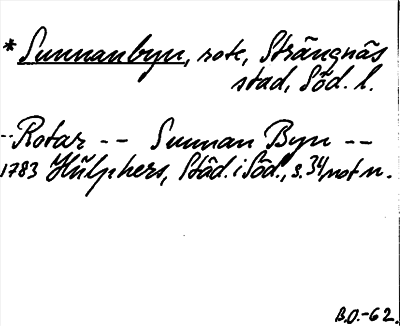 *Sunnanbyn, rote, Strängnäs
stad, Söd. l.
-- Rotar -- Sunnan Byn --
1783 Hülphers, Städ. i Söd., s. 34, not n.
B.O.-62.